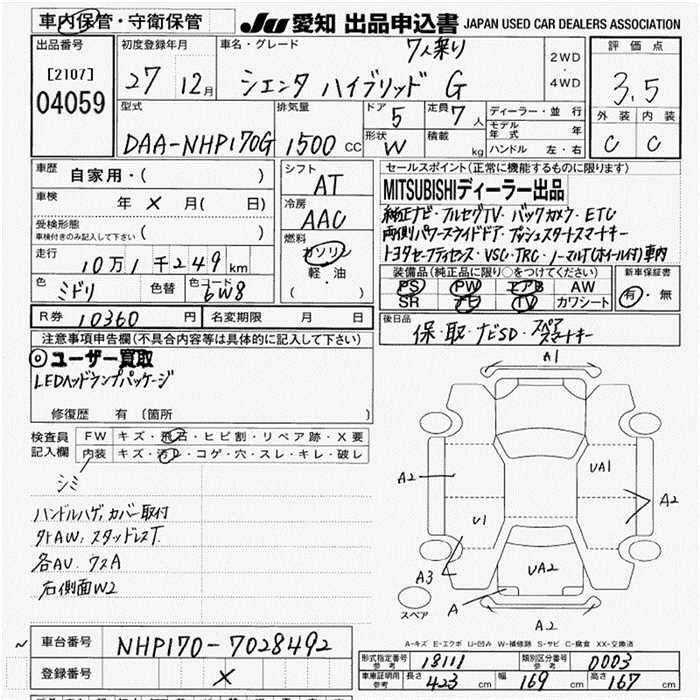 車内保管・守衛保管
JU 愛知 出品申込書 JAPAN USED CAR DEALERS ASSOCIATION
出品番号
[2107]
04059
初度登録年月
27 12月
車名・グレード
7人乗り
シエンタ ハイブリッド G
2WD
・
4WD
評価点
3.5
外装 内装
C C
型式
DAA-NHP170G
排気量
1500 CC
ドア
5
定員
7人
形状
W
積載
kg
ディーラー・並行
モデル年式 年
ハンドル 左・右
車歴
自家用・( )
車検
年 X 月( 日)
受検形態
車検付きのみ記入して下さい ( )
走行
10万1千249km
色
ミドリ
色替
色コード
6W8
シフト
AT
冷房
AAC
燃料
ガソリン
軽・油
( )
セールスポイント(正常に機能するものに限ります)
MITSUBISHIディーラー出品
純正ナビ・フルセグTV・バックカメラ・ETC
両側パワースライドドア・プッシュスタートスマートキー
トヨタセーフティセンス・VSC・TRC・ノーマルT(ホイール付)車内
装備品(純正品に限り○をつけてください)
PS PW エアB AW
SR ナビ TV カワシート
新車保証書
有・無
R券 10360 円
名変期限 月 日
後日品
保・取・ナビSD・スペアスマートキー
注意事項申告欄(不具合内容等は具体的に記入して下さい)
◎ユーザー買取
LEDヘッドランプパッケージ
修復歴 有 (箇所 )
検査員記入欄
FW キズ・飛石・ヒビ割・リペア跡・X要
内装 キズ・汚レ・コゲ・穴・スレ・キレ・破レ
シミ
ハンドルハゲ、カバー取付
外AW、スタッドレスT
各AU、ウスA
右側面W2
A1
A2
UA1
A2
U1
A3
UA2
A
A2
スペア
A-キズ E-エクボ U-凹み W-補修跡 S-サビ C-腐食 XX-交換済
車台番号
NHP170-7028492
登録番号
X
形式指定番号 参考
18111
類別区分番号 参考
0003
車庫証明用 参考
長さ 423 cm
幅 169 cm
高さ 167 cm